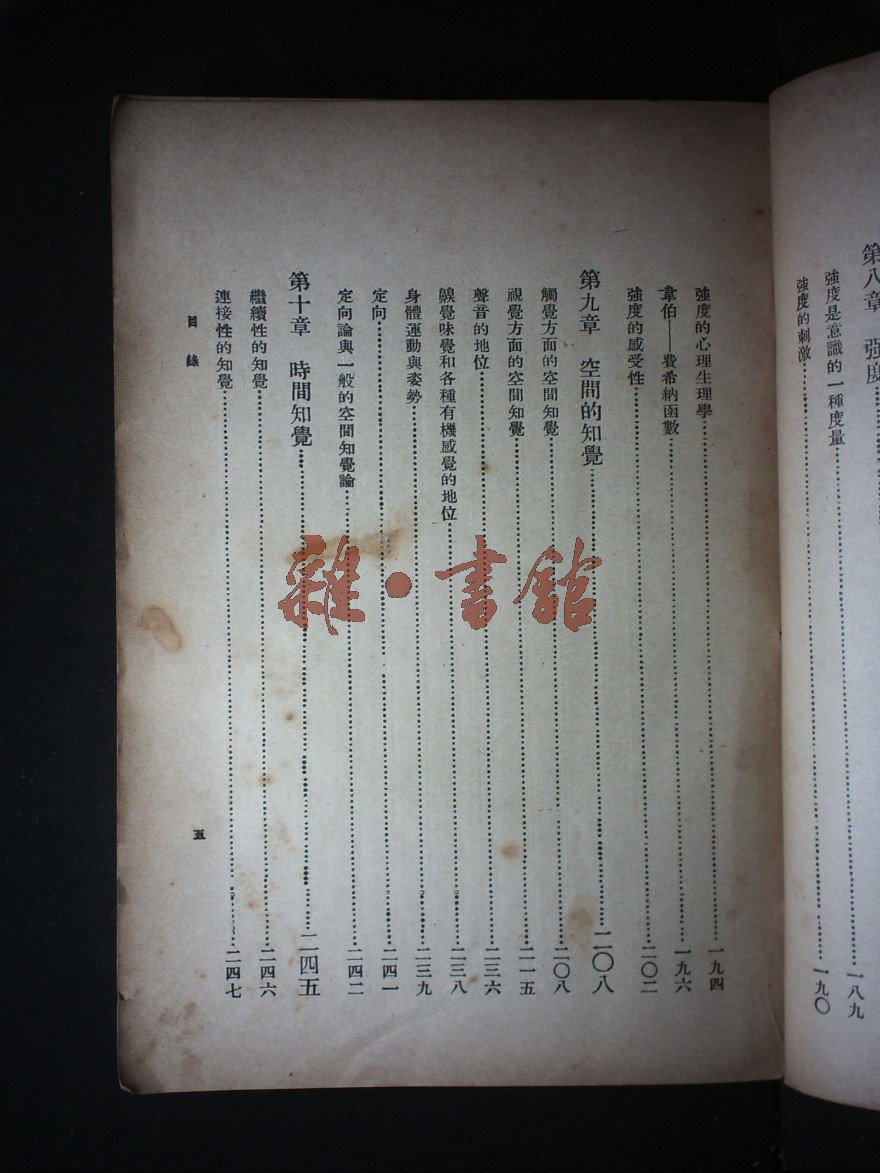 第八章　強度
強度是意識的一種度量……一八九
強度的刺激……一九〇
強度的心理生理學……一九四
韋伯——費希納函數……一九六
強度的感受性……二〇二
第九章　空間的知覺……二〇八
觸覺方面的空間知覺……二〇八
視覺方面的空間知覺……二一五
聲音的地位……二三六
嗅覺味覺和各種有機感覺的地位……二三八
身體運動與姿勢……二三九
定向……二四一
定向論與一般的空間知覺論……二四二
第十章　時間知覺……二四五
繼續性的知覺……二四六
連接性的知覺……二四七
目錄
五
雜·書館